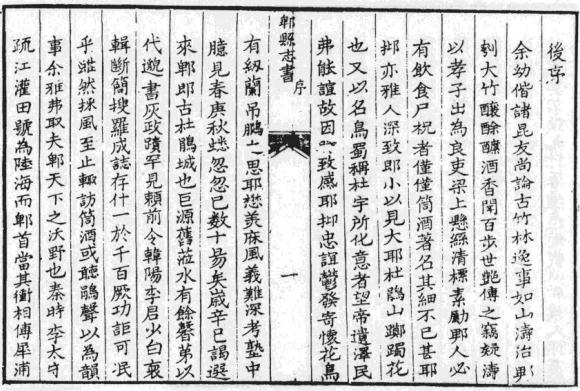 後序
余幼偕諸昆友尚論古竹林逸事如山濤治郫
刳大竹釀酴醿酒香聞百步世艷傳之竊疑濤
以孝子出為良吏梁上懸絲清標素勵郫人必
有飲食尸祝者僅僅筒酒著名其細不已甚耶
抑亦雅人深致即小以見大耶杜鵑山躑躅花
也又以名鳥蜀稱杜宇所化意者望帝遺澤民
弗能諠故因以致感耶抑忠誼鬱發寄懷花鳥
郫縣志書
序
一
有紉蘭吊鵩之思耶羨庥風義難深考塾中
臆見春庚秋蟋忽忽已數十易矣歲辛巳謁選
來郫即古杜鵑城也巨源舊蒞水有餘馨第以
代邈書灰政蹟罕見賴前令韓陽李君少白裒
輯斷簡搜羅成誌存什一於千百厥功詎可泯
乎雖然採風至止輙訪筒酒或聽鵑聲以為韻
事余雅弗取夫郫天下之沃野也秦時李太守
疏江灌田號為陸海而郫首當其衝相傳犀浦